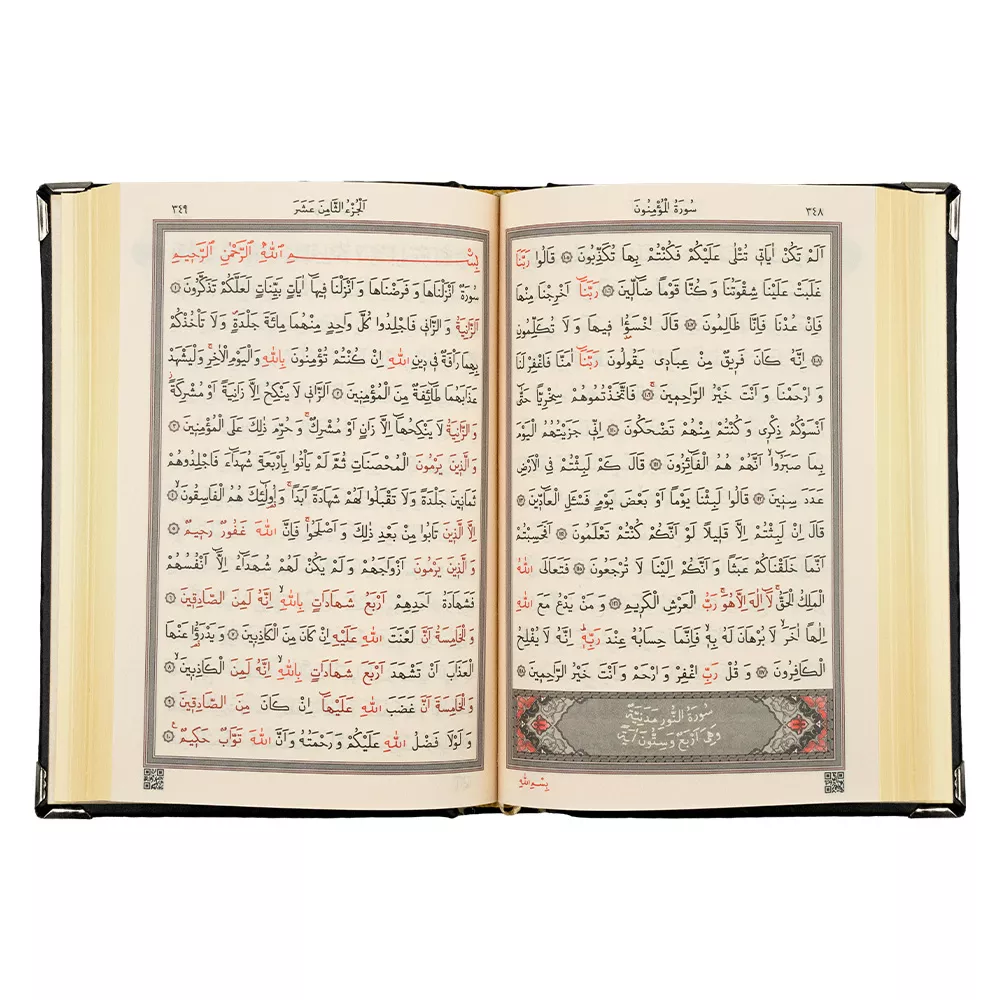 ٣٤٨
سُورَةُ الْمُؤْمِنُونَ
اَلَمْ تَكُنْ اٰيَاتٖي تُتْلٰى عَلَيْكُمْ فَكُنْتُمْ بِهَا تُكَذِّبُونَ ١٠٥ قَالُوا رَبَّنَا
غَلَبَتْ عَلَيْنَا شِقْوَتُنَا وَكُنَّا قَوْمًا ضَٓالّٖينَ ١٠٦ رَبَّنَٓا اَخْرِجْنَا مِنْهَا
فَاِنْ عُدْنَا فَاِنَّا ظَالِمُونَ ١٠٧ قَالَ اخْسَؤُ۫ا فٖيهَا وَلَا تُكَلِّمُونِ
١٠٨ اِنَّهُ كَانَ فَرٖيقٌ مِنْ عِبَادٖي يَقُولُونَ رَبَّنَٓا اٰمَنَّا فَاغْفِرْ لَنَا
وَارْحَمْنَا وَاَنْتَ خَيْرُ الرَّاحِمٖينَ ١٠٩ فَاتَّخَذْتُمُوهُمْ سِخْرِيًّا حَتّٰٓى
اَنْسَوْكُمْ ذِكْرٖي وَكُنْتُمْ مِنْهُمْ تَضْحَكُونَ ١١٠ اِنّٖي جَزَيْتُهُمُ الْيَوْمَ
بِمَا صَبَرُٓوا اَنَّهُمْ هُمُ الْفَٓائِزُونَ ١١١ قَالَ كَمْ لَبِثْتُمْ فِي الْاَرْضِ
عَدَدَ سِنٖينَ ١١٢ قَالُوا لَبِثْنَا يَوْمًا اَوْ بَعْضَ يَوْمٍ فَسْـَٔلِ الْعَٓادّٖينَ ١١٣
قَالَ اِنْ لَبِثْتُمْ اِلَّا قَلٖيلًا لَوْ اَنَّكُمْ كُنْتُمْ تَعْلَمُونَ ١١٤ اَفَحَسِبْتُمْ
اَنَّمَا خَلَقْنَاكُمْ عَبَثًا وَاَنَّكُمْ اِلَيْنَا لَا تُرْجَعُونَ ١١٥ فَتَعَالَى اللّٰهُ
الْمَلِكُ الْحَقُّۚ لَٓا اِلٰهَ اِلَّا هُوَۚ رَبُّ الْعَرْشِ الْكَرٖيمِ ١١٦ وَمَنْ يَدْعُ مَعَ اللّٰهِ
اِلٰهًا اٰخَرَۙ لَا بُرْهَانَ لَهُ بِهٖۙ فَاِنَّمَا حِسَابُهُ عِنْدَ رَبِّهٖؕ اِنَّهُ لَا يُفْلِحُ
الْكَافِرُونَ ١١٧ وَقُلْ رَبِّ اغْفِرْ وَارْحَمْ وَاَنْتَ خَيْرُ الرَّاحِمٖينَ ١١٨
سُورَةُ النُّورِ مَدَنِيَّةٌ
وَهِيَ اَرْبَعٌ وَسِتُّونَ اٰيَةً
بِسْمِ اللّٰهِ
اَلْجُزْءُ الثَّامِنَ عَشَرَ
٣٤٩
بِسْمِ اللّٰهِ الرَّحْمٰنِ الرَّحٖيمِ
سُورَةٌ اَنْزَلْنَاهَا وَفَرَضْنَاهَا وَاَنْزَلْنَا فٖيهَٓا اٰيَاتٍ بَيِّنَاتٍ لَعَلَّكُمْ تَذَكَّرُونَ ١
اَلزَّانِيَةُ وَالزَّانٖي فَاجْلِدُوا كُلَّ وَاحِدٍ مِنْهُمَا مِائَةَ جَلْدَةٍ وَلَا تَأْخُذْكُمْ
بِهِمَا رَأْفَةٌ فٖي دٖينِ اللّٰهِ اِنْ كُنْتُمْ تُؤْمِنُونَ بِاللّٰهِ وَالْيَوْمِ الْاٰخِرِۚ وَلْيَشْهَدْ
عَذَابَهُمَا طَٓائِفَةٌ مِنَ الْمُؤْمِنٖينَ ٢ اَلزَّانٖي لَا يَنْكِحُ اِلَّا زَانِيَةً اَوْ مُشْرِكَةًۘ
وَالزَّانِيَةُ لَا يَنْكِحُهَٓا اِلَّا زَانٍ اَوْ مُشْرِكٌۚ وَحُرِّمَ ذٰلِكَ عَلَى الْمُؤْمِنٖينَ ٣
وَالَّذٖينَ يَرْمُونَ الْمُحْصَنَاتِ ثُمَّ لَمْ يَأْتُوا بِاَرْبَعَةِ شُهَدَٓاءَ فَاجْلِدُوهُمْ
ثَمَانٖينَ جَلْدَةً وَلَا تَقْبَلُوا لَهُمْ شَهَادَةً اَبَدًاۚ وَاُو۬لٰٓئِكَ هُمُ الْفَاسِقُونَ ٤
اِلَّا الَّذٖينَ تَابُوا مِنْ بَعْدِ ذٰلِكَ وَاَصْلَحُواۚ فَاِنَّ اللّٰهَ غَفُورٌ رَحٖيمٌ ٥
وَالَّذٖينَ يَرْمُونَ اَزْوَاجَهُمْ وَلَمْ يَكُنْ لَهُمْ شُهَدَٓاءُ اِلَّٓا اَنْفُسُهُمْ
فَشَهَادَةُ اَحَدِهِمْ اَرْبَعُ شَهَادَاتٍ بِاللّٰهِۙ اِنَّهُ لَمِنَ الصَّادِقٖينَ ٦
وَالْخَامِسَةُ اَنَّ لَعْنَتَ اللّٰهِ عَلَيْهِ اِنْ كَانَ مِنَ الْكَاذِبٖينَ ٧ وَيَدْرَؤُ۬ا عَنْهَا
الْعَذَابَ اَنْ تَشْهَدَ اَرْبَعَ شَهَادَاتٍ بِاللّٰهِۙ اِنَّهُ لَمِنَ الْكَاذِبٖينَۙ ٨
وَالْخَامِسَةَ اَنَّ غَضَبَ اللّٰهِ عَلَيْهَٓا اِنْ كَانَ مِنَ الصَّادِقٖينَ ٩
وَلَوْلَا فَضْلُ اللّٰهِ عَلَيْكُمْ وَرَحْمَتُهُ وَاَنَّ اللّٰهَ تَوَّابٌ حَكٖيمٌ ١٠